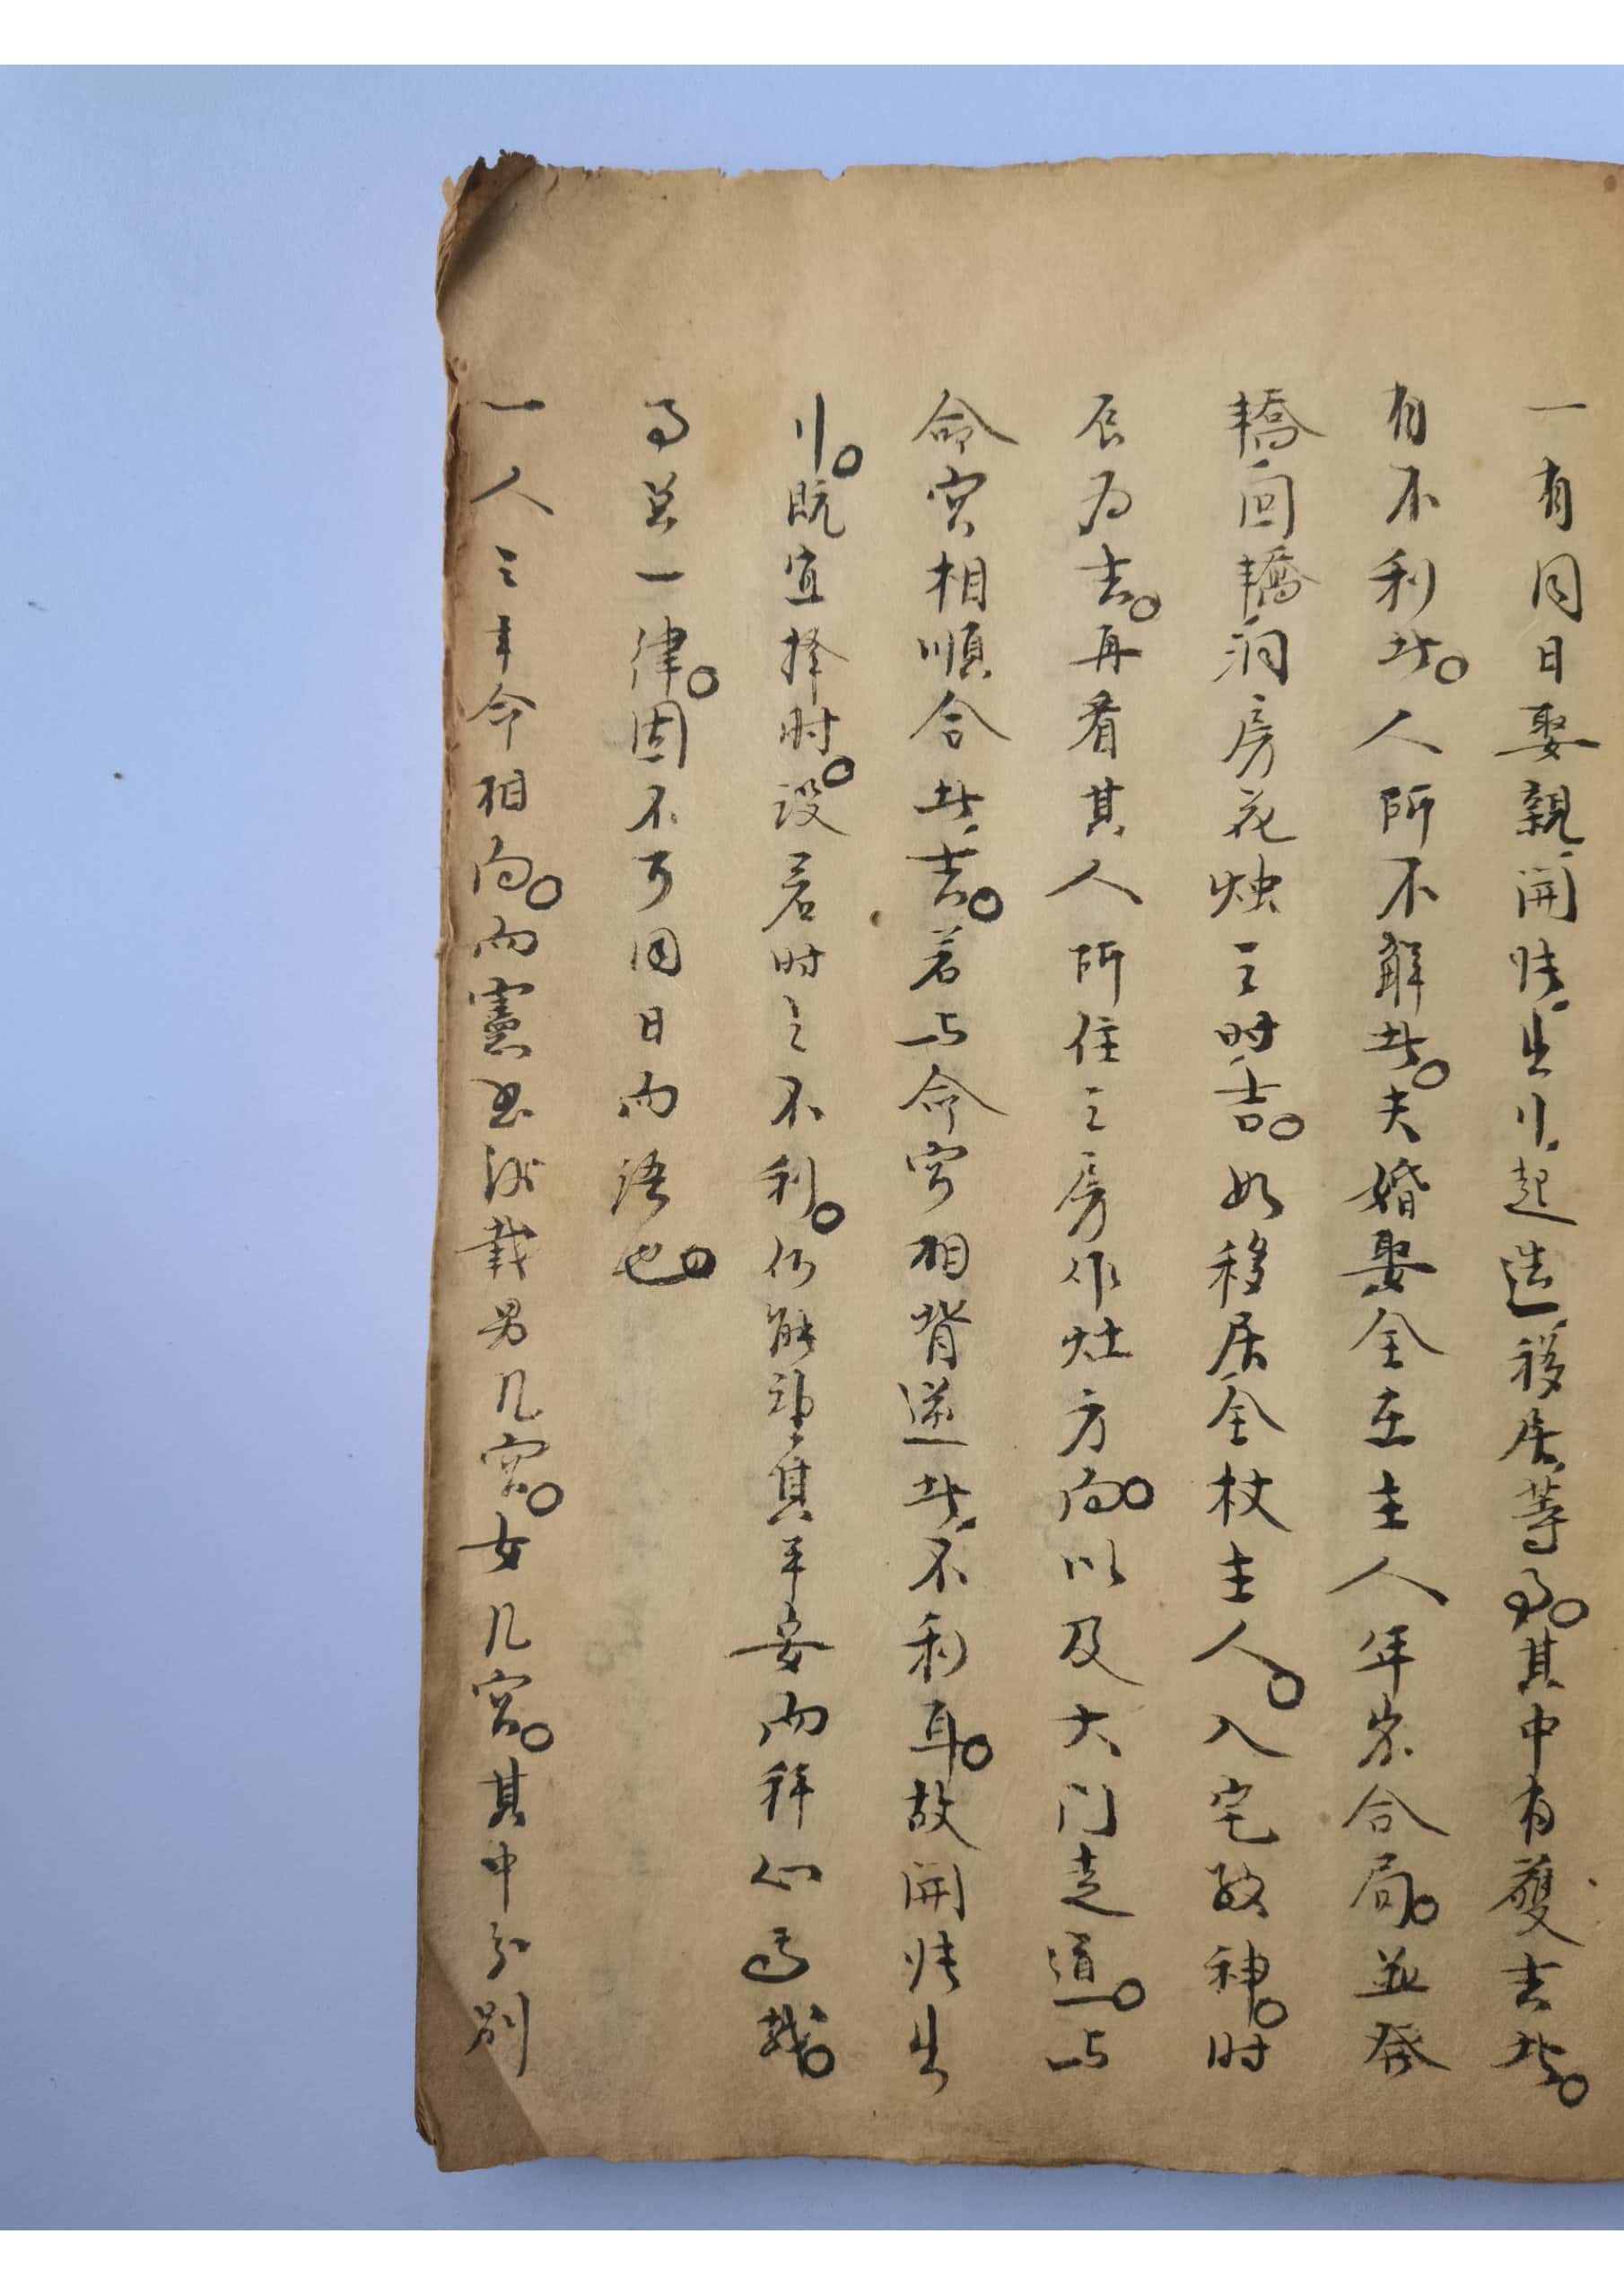 一有同日娶親開张出行起造移居等事。其中有獲吉者。
有不利者。人所不解者。夫婚娶全在主人年家合局。並發
轎回轎洞房花烛之时吉。如移居全杖主人。入宅敬神。时
辰为吉。再看其人所住之房作灶方向。以及大门走道。与
命宮相順合者吉。若与命宮相背逆者不利耳。故開张出
行。既宜择时。设若时之不利。仍能望其平安而称心焉哉。
事然一律。固不可同日而语也。
一人之年命相向。而憲書所載男几宮。女几宮。其中分别